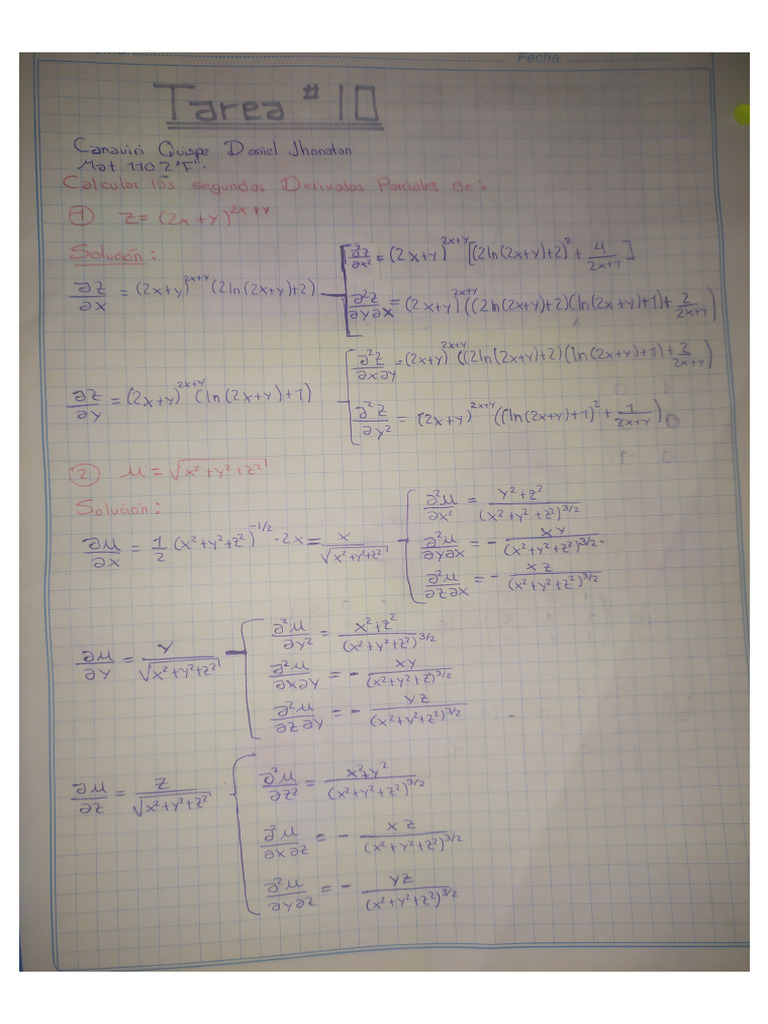 Fecha:
Tarea # 10
Canaviri Quispe Daniel Jhonatan
Mat 1102 "F".
Calcular las segundas Derivadas Parciales de:
① Z = (2x+y)^{2x+y}
Solución:
∂z/∂x = (2x+y)^{2x+y} (2ln(2x+y)+2)
∂²z/∂x² = (2x+y)^{2x+y} [(2ln(2x+y)+2)² + 4/(2x+y)]
∂²z/∂y∂x = (2x+y)^{2x+y} ((2ln(2x+y)+2)(ln(2x+y)+1) + 2/(2x+y))
∂z/∂y = (2x+y)^{2x+y} (ln(2x+y)+1)
∂²z/∂x∂y = (2x+y)^{2x+y} ((2ln(2x+y)+2)(ln(2x+y)+1) + 2/(2x+y))
∂²z/∂y² = (2x+y)^{2x+y} ((ln(2x+y)+1)² + 1/(2x+y))
② μ = √(x²+y²+z²)
Solución:
∂μ/∂x = 1/2 (x²+y²+z²)^{-1/2} · 2x = x/√(x²+y²+z²)
∂²μ/∂x² = (y²+z²)/(x²+y²+z²)^{3/2}
∂²μ/∂y∂x = - xy/(x²+y²+z²)^{3/2}
∂²μ/∂z∂x = - xz/(x²+y²+z²)^{3/2}
∂μ/∂y = y/√(x²+y²+z²)
∂²μ/∂y² = (x²+z²)/(x²+y²+z²)^{3/2}
∂²μ/∂x∂y = - xy/(x²+y²+z)^{3/2}
∂²μ/∂z∂y = - yz/(x²+y²+z²)^{3/2}
∂μ/∂z = z/√(x²+y²+z²)
∂²μ/∂z² = (x²+y²)/(x²+y²+z²)^{3/2}
∂²μ/∂x∂z = - xz/(x²+y²+z²)^{3/2}
∂²μ/∂y∂z = - yz/(x²+y²+z²)^{3/2}